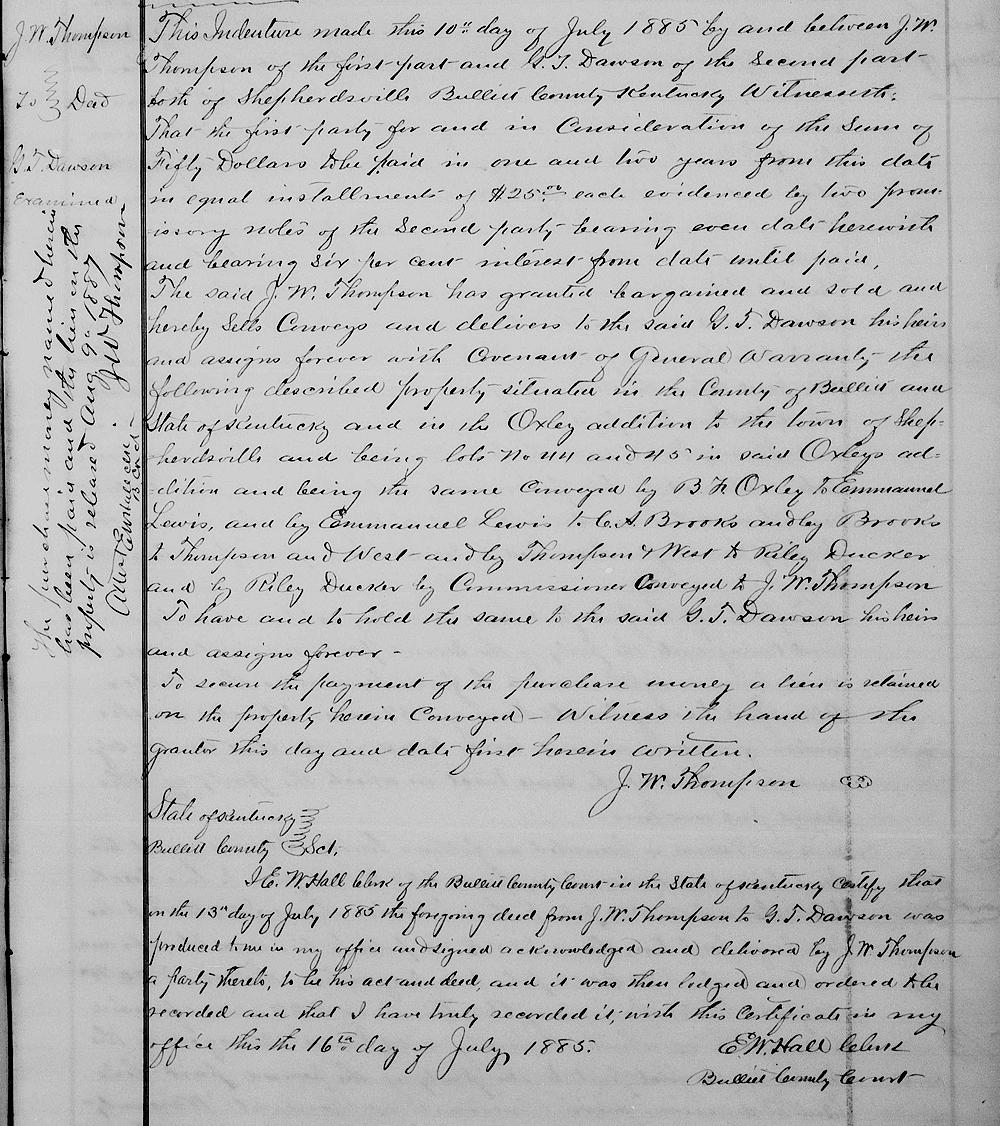 J. W. Thompson
To } Deed
G. T. Dawson
Examined
The purchase money named herein
has been paid and the lien on the
property is released Aug 9th 1887
J W Thompson
Attest
This Indenture made this 10th day of July 1885 by and between J. W.
Thompson of the first part and G. T. Dawson of the Second part
both of Shepherdsville Bullitt County Kentucky Witnesseth:
That the first party for and in Consideration of the Sum of
Fifty Dollars to be paid in one and two years from this date
in equal installments of $25.00 each evidenced by two prom-
issory notes of the Second party bearing even date herewith
and bearing Six per cent interest from date until paid,
The said J. W. Thompson has granted bargained and sold and
hereby Sells Conveys and delivers to the said G. T. Dawson his heirs
and assigns forever with Covenant of General Warranty the
following described property situated in the County of Bullitt and
State of Kentucky and in the Oxley addition to the town of Shep-
herdsville and being lots No 44 and 45 in said Oxleys ad-
dition and being the same Conveyed by B. F. Oxley to Emmanuel
Lewis, and by Emmanuel Lewis to C. A. Brooks and by Brooks
to Thompson and West and by Thompson & West to Riley Ducker
and by Riley Ducker by Commissioner Conveyed to J. W. Thompson
To have and to hold the same to the said G. T. Dawson his heirs
and assigns forever -
To secure the payment of the purchase money a lien is retained
on the property herein Conveyed - Witness the hand of the
grantor this day and date first herein written.
J. W. Thompson
State of Kentucky
Bullitt County } Sct.
I E. W. Hall Clerk of the Bullitt County Court in the State of Kentucky Certify that
on the 13th day of July 1885 the foregoing deed from J. W. Thompson to G. T. Dawson was
produced to me in my office and signed acknowledged and delivered by J. W. Thompson
a party thereto, to be his act and deed, and it was then lodged and ordered to be
recorded and that I have truly recorded it, with this Certificate in my
office this the 16th day of July 1885.
E. W. Hall Clerk
Bullitt County Court